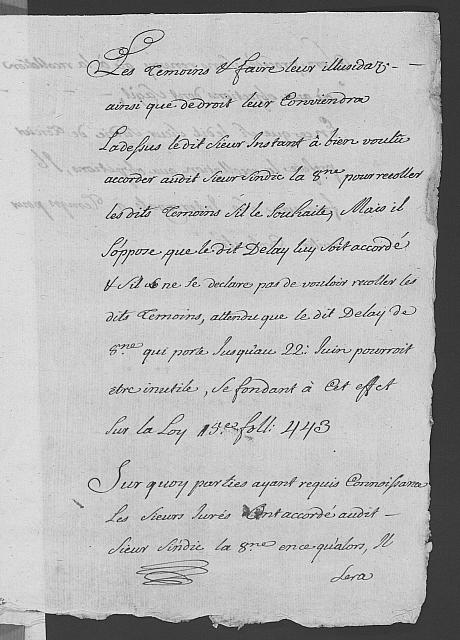 Les Temoins & faire leur illusidaz; —
ainsi que de droit leur Conviendra
Ladessus ledit Sieur Instant à bien voulu
accorder audit Sieur Sindic la 8.ne pour recoller
les dits Temoins s'il le Souhaite, Mais il
S'oppose que le dit Delay luy soit accordé
& s'il ne se declare pas de vouloir recoller les
dits Temoins, attendu que le dit Delay de
8.ne qui porte Jusqu'au 22: Juin pourroit
etre inutile, se fondant à Cet effet
Sur la Loy 15.e foll: 443
Sur quoy parties ayant requis Connoissance
Les Sieurs Jurés Ont accordé audit —
Sieur Sindic la 8.ne en ce qu'alors, Il
Sera